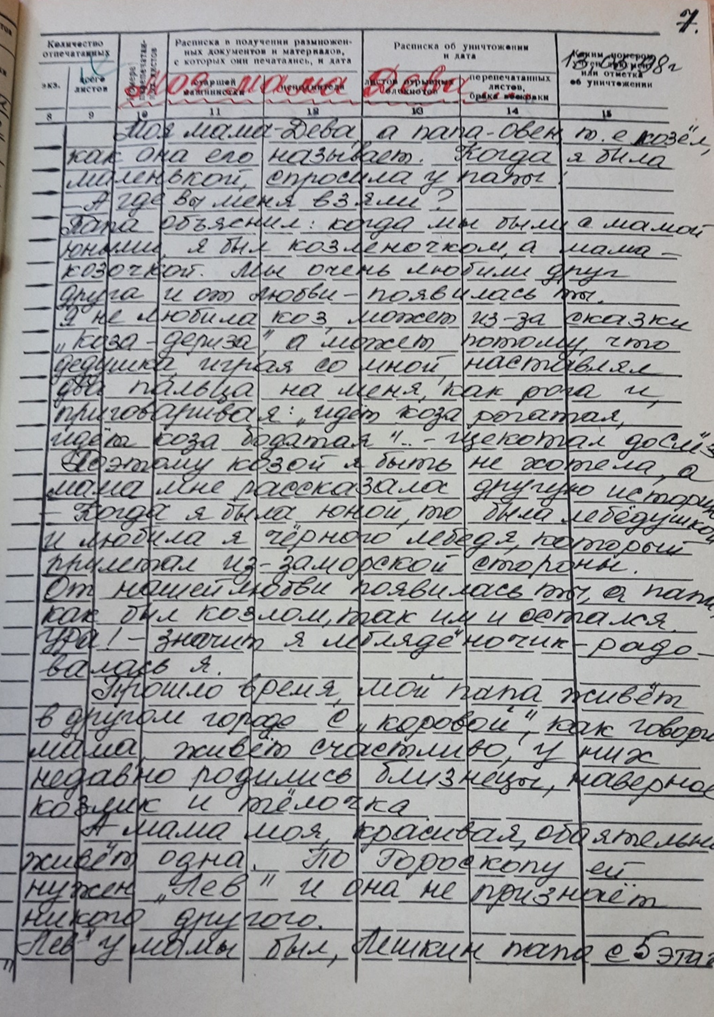 7.
Количество отпечатанных
Расписка в получении размножен-
ных документов и материалов,
с которых они печатались, и дата
Расписка об уничтожении
и дата
или отметка
об уничтожении
экз.
всего
листов
перепечатанных
листов,
8 9 10 11 12 13 14 15
Моя мама Дева
Моя мама-Дева, а папа-овен т. е козёл,
как она его называет. Когда я была
маленькой, спросила у папы:
- А где вы меня взяли?
Папа объяснил: когда мы были с мамой
юными, я был козлёночком, а мама-
козочкой. Мы очень любили друг
друга и от любви-появилась ты.
Я не любила коз, может из-за сказки
„Коза-дериза", а может потому, что
дедушка играя со мной, наставлял
два пальца на меня, как рога и,
приговаривая: „идёт коза рогатая,
идёт коза бодатая"... - щекотал до слёз
Поэтому козой я быть не хотела, а
мама мне рассказала другую истори
- Когда я была юной, то была лебёдушкой
и любила я чёрного лебедя, который
прилетал из-заморской стороны.
От нашей любви появилась ты, а папа
как был козлом, так им и остался.
Ура! - значит я лебедёночик-радо-
валась я.
Прошло время, мой папа живёт
в другом городе с „коровой", как говори
мама живёт счастливо, у них
недавно родились близнецы, наверное
козлик и тёлочка.
А мама моя, красивая, обаятельна
живёт одна. По Гороскопу ей
нужен „Лев" и она не признаёт
никого другого.
„Лев" у мамы был, Лёшкин папа с 5 этаж